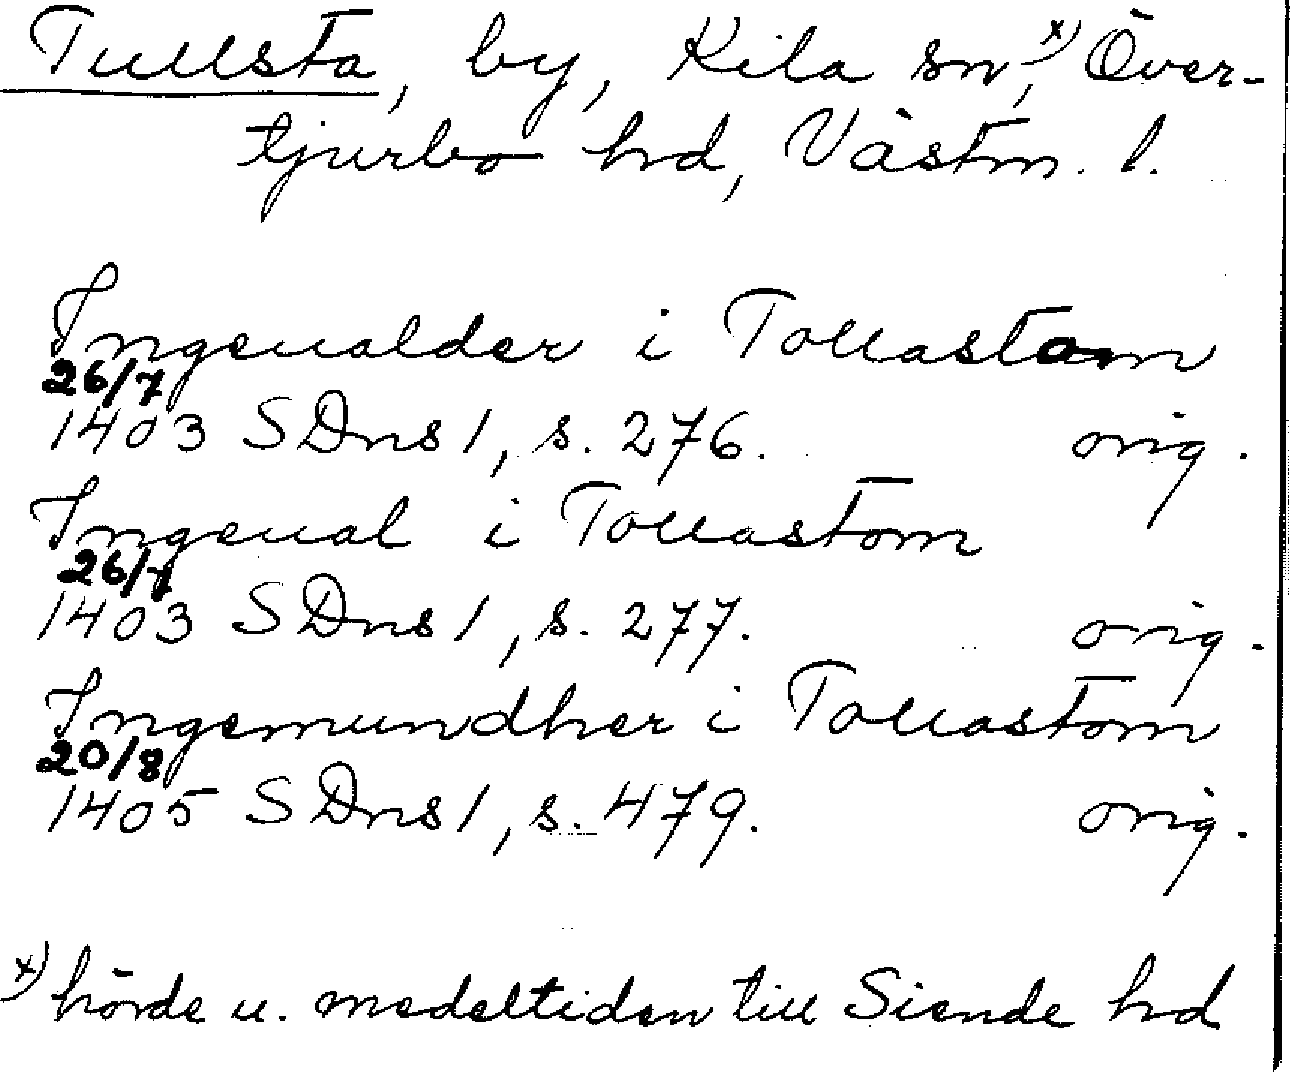 Tullsta, by, Kila sn,x) Över-
tjurbo hd, Västm. l.
Ingeualder i Tollastom
26/7
1403 SDns 1, s. 276. orig.
Ingeual i Tollastom
26/7
1403 SDns 1, s. 277. orig.
Ingemundher i Tollastom
20/8
1405 SDns 1, s. 479. orig.
x) hörde u. medeltiden till Siende hd